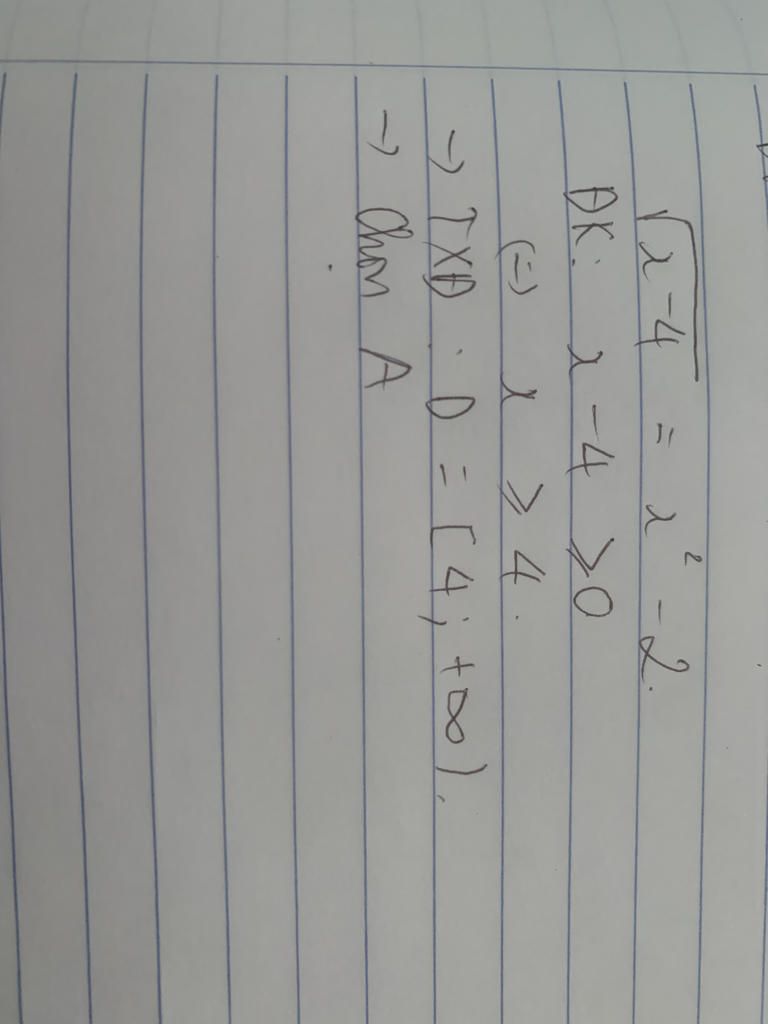 √x-4 = x² - 2.
ĐK: x - 4 ≥ 0
(=) x ≥ 4.
→ TXĐ : D = [4; +∞).
→ Chọn A